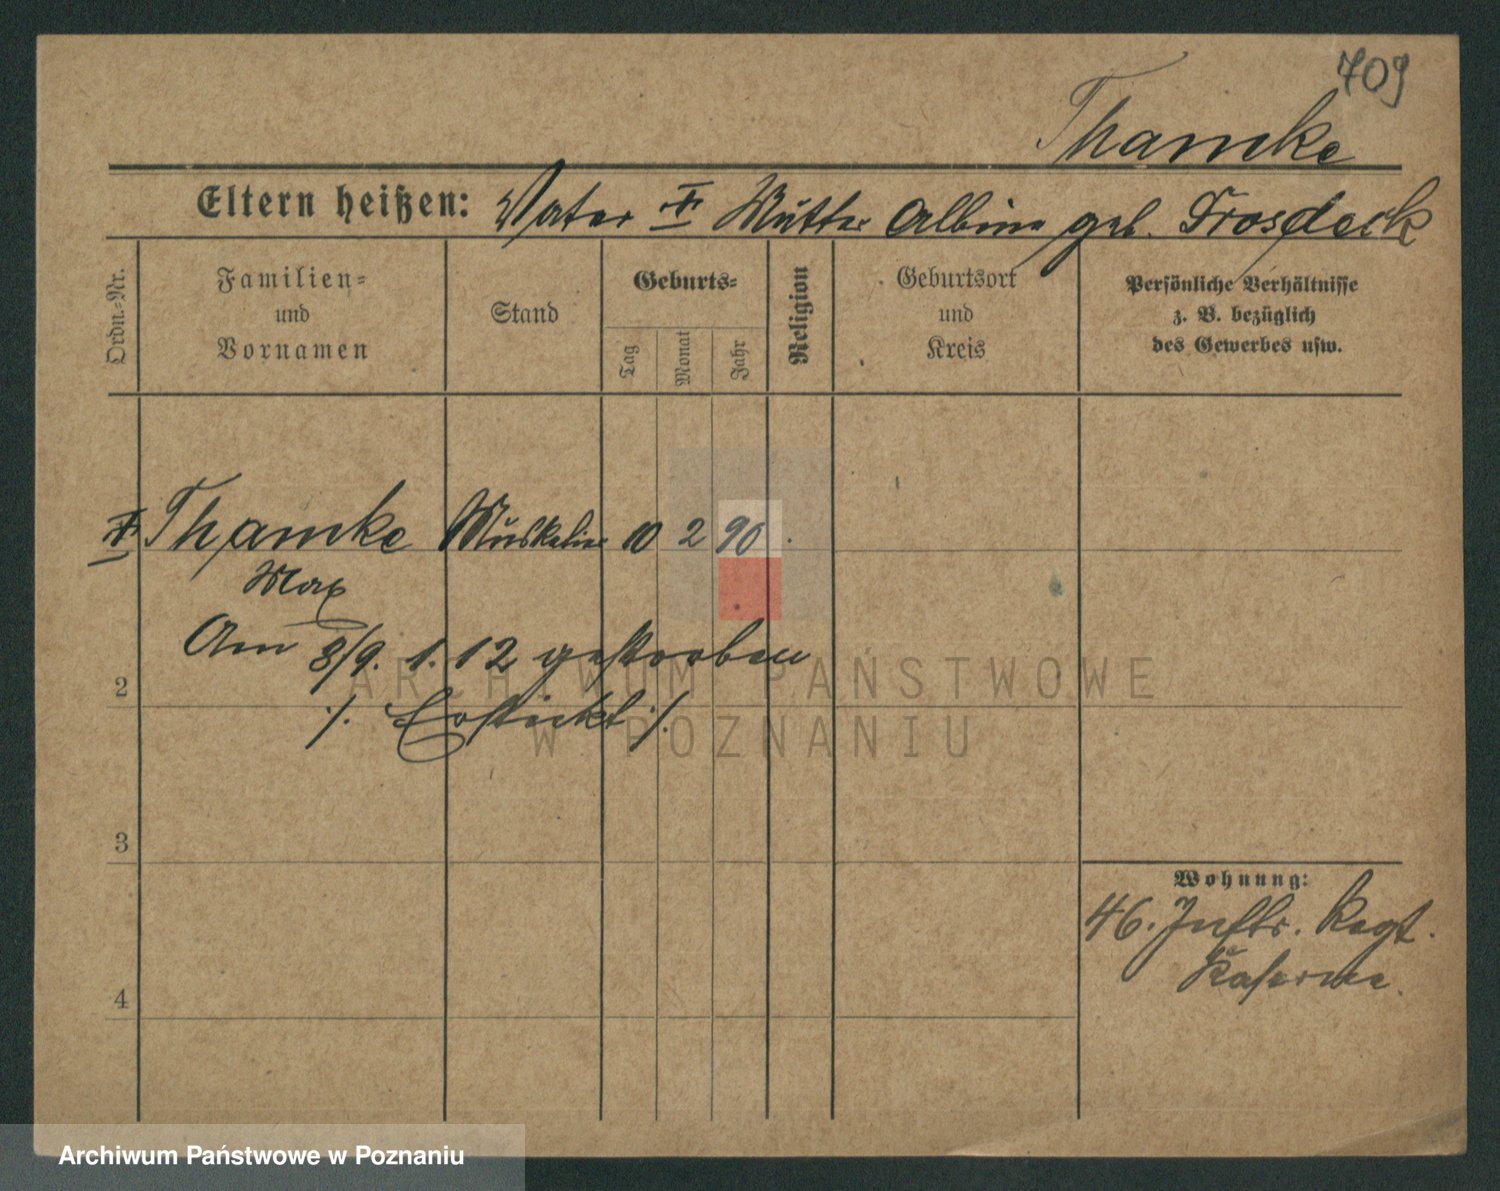 709
Thamke
Eltern heißen: Vater † Mutter Albine geb.
Ordn.-Nr.
Familien- und Vornamen
Stand
Geburts-
Tag
Monat
Jahr
Religion
Geburtsort und Kreis
Persönliche Verhältnisse z. B. bezüglich des Gewerbes usw.
† Thamke Musketier 10 2 90
Max
Am 8/9. 1. 12 gestorben
2
·/. Erstickt ·/.
3
4
Wohnung:
46. Inftr. Regt.
Kaserne.
ARCHIWUM PAŃSTWOWE
W POZNANIU
Archiwum Państwowe w Poznaniu